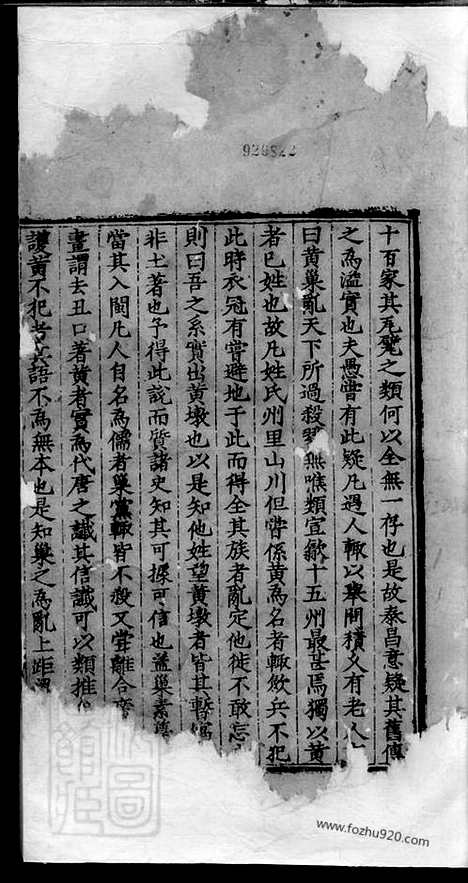 928822
十百家其瓦甓之類何以全無一存也是故泰昌意疑其舊傳
之為溢實也夫愚嘗有此疑凡遇人輒以舉問積久有老人
曰黃巢亂天下所過殺戮無喉類宣歙十五州最甚焉獨以黃
者已姓也故凡姓氏州里山川但嘗係黃為名者輒歛兵不犯
此時衣冠有嘗避地于此而得全其族者亂定他徙不敢忘
則曰吾之系實出黃墩也以是知他姓望黃墩者皆其暫寓
非土著也予得此說而質諸史知其可探可信也蓋巢素
當其入閩凡人自名為儒者巢黨輒皆不殺又嘗離合
畫謂去丑口著黃者實為代唐之讖其信讖可以類推
護黃不犯考其語不為無本也是知巢之為亂上距
圖
www.fozhu920.com